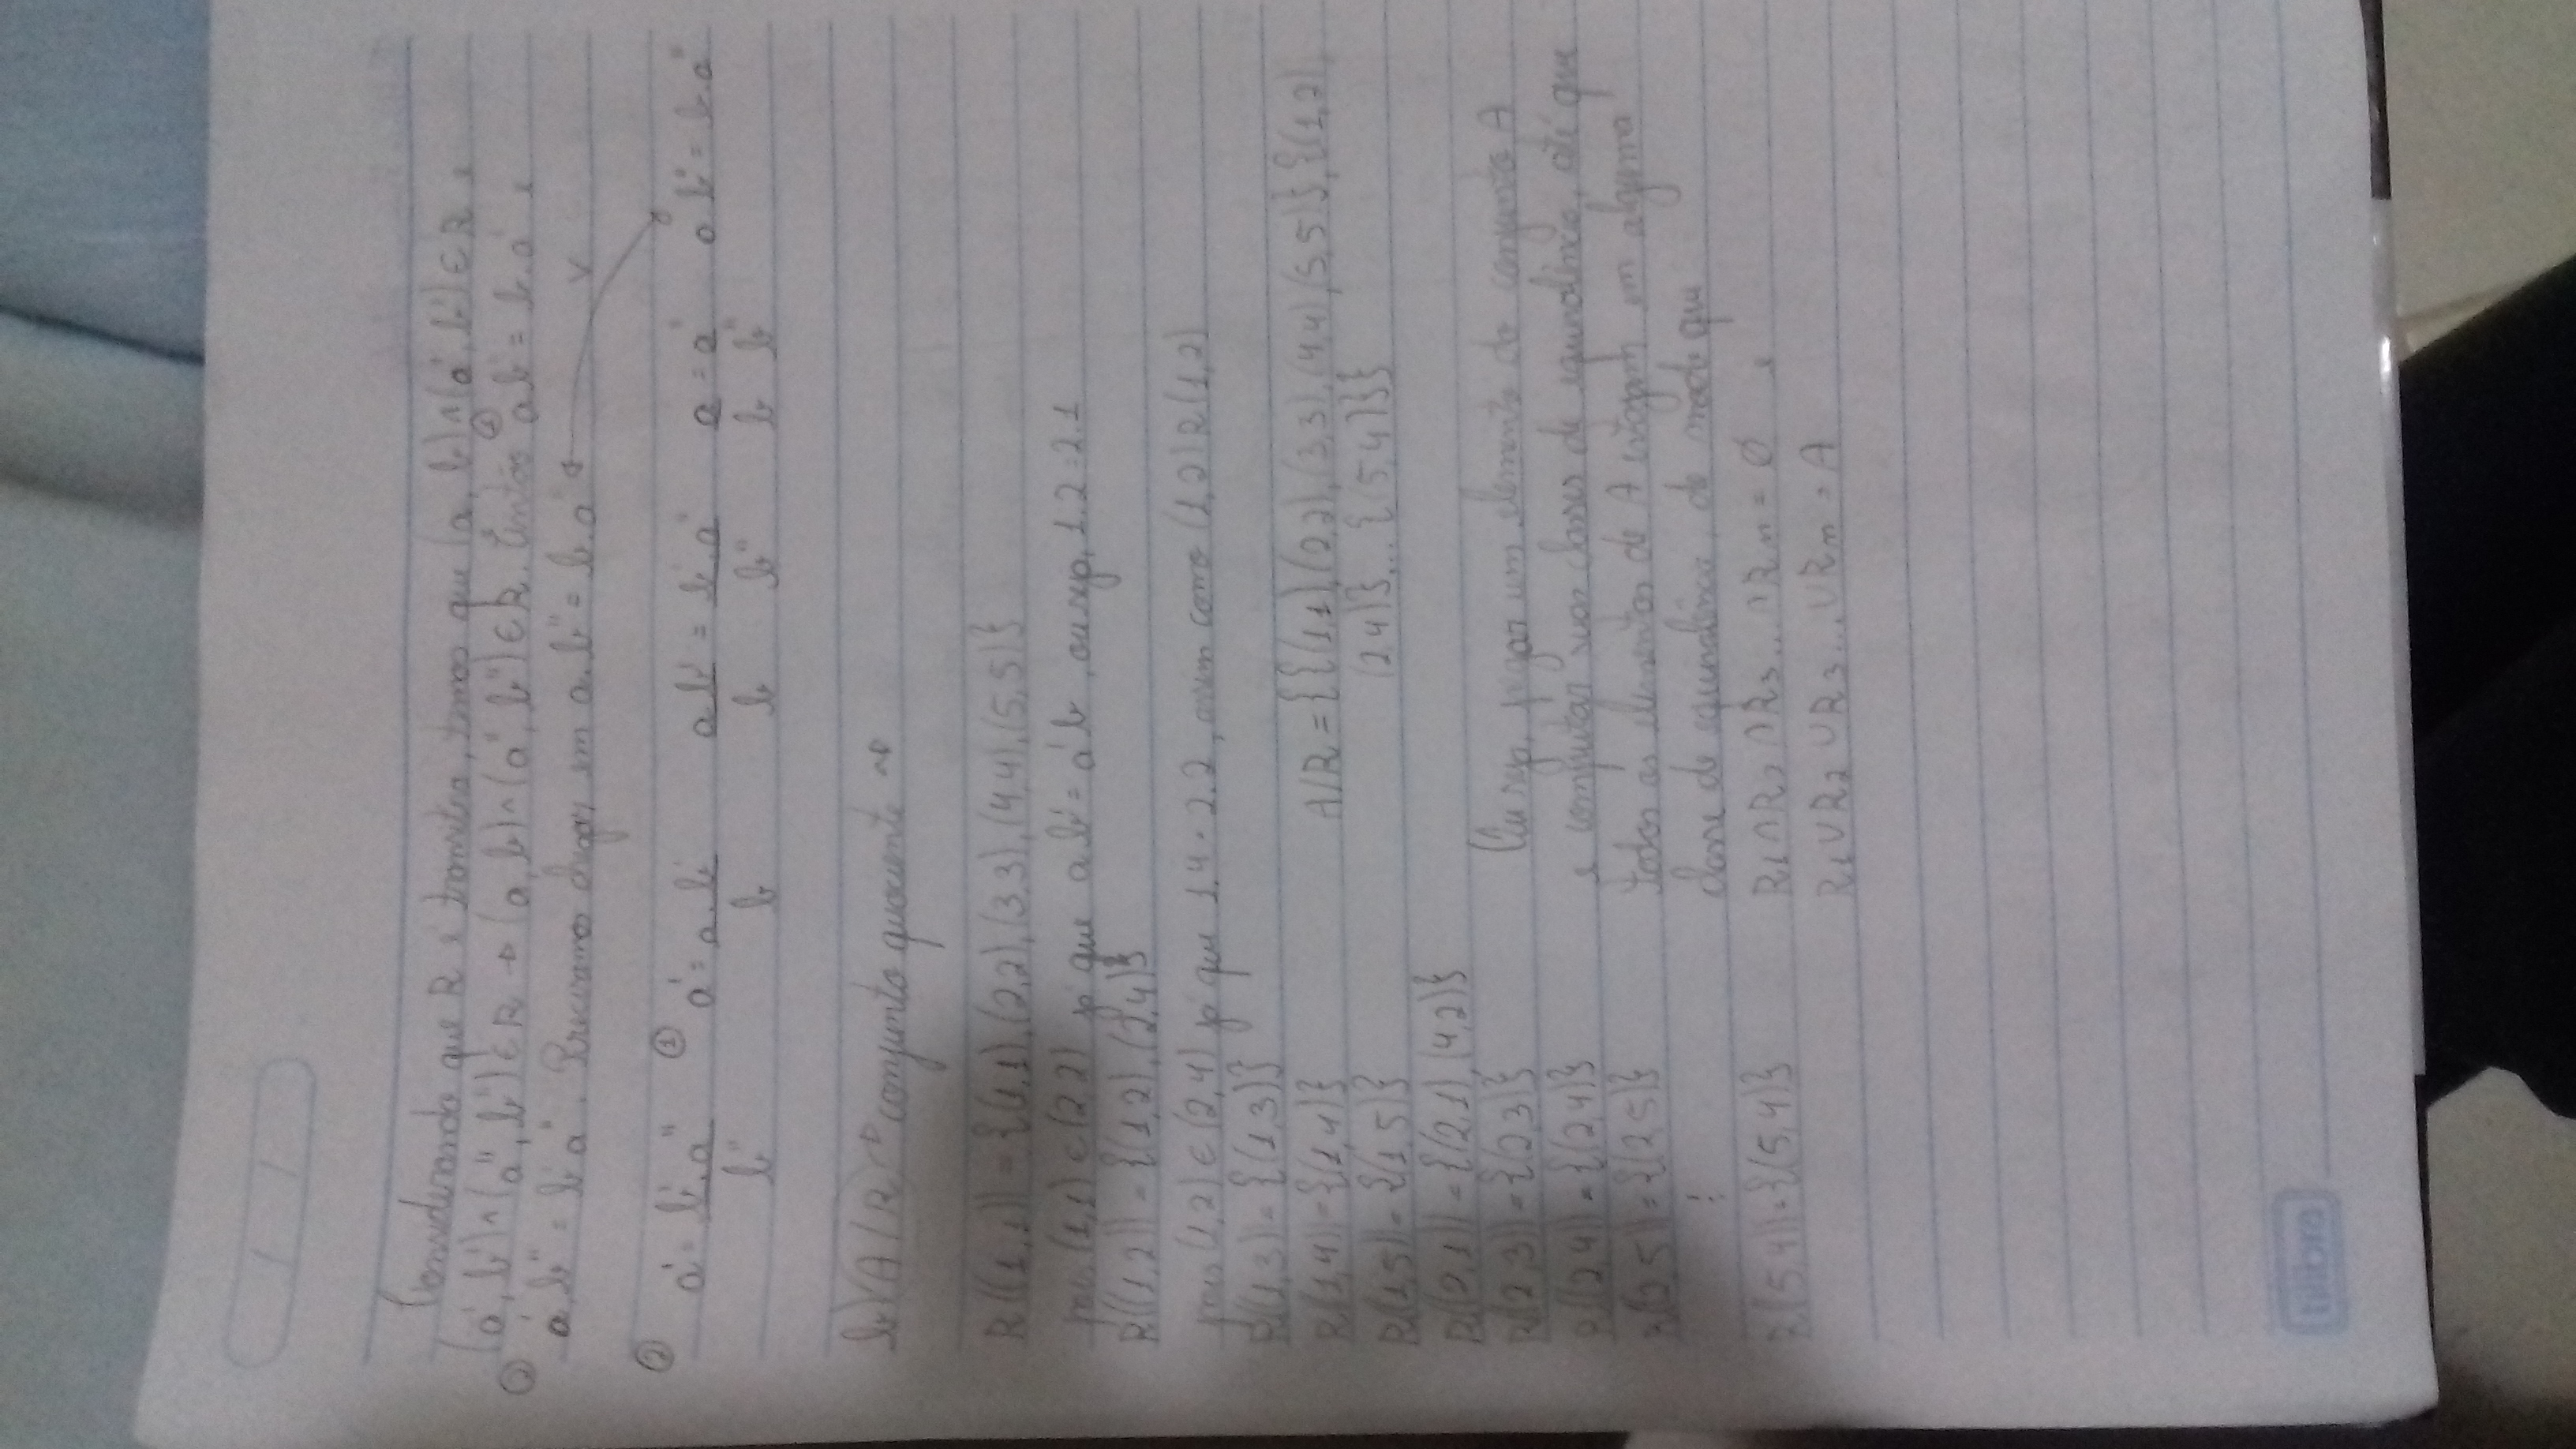 Considerando que R é transitiva, temos que (a, b)^(a', b') ∈ R e
(a', b')^(a'', b'') ∈ R → (a, b)^(a'', b'') ∈ R. Então ① ab' = b.a' e
② a'b'' = b'a''. Precisamos chegar em a.b'' = b.a''
② a' = b'.a''/b'' ① a' = a.b'/b ab'/b = b'.a''/b'' a/b = a''/b'' a b'' = b.a''
b) A/R → conjunto quociente ~>
R((1,1)) = {(1,1),(2,2),(3,3),(4,4),(5,5)}
pois (1,1) ∈ (2,2) já que ab' = a'b, ou seja, 1.2=2.1
R((1,2)) = {(1,2),(2,4)}
pois (1,2) ∈ (2,4) já que 1.4=2.2, assim como (1,2)R(1,2)
R((1,3) = {(1,3)}
R((1,4)) = {(1,4)}
R((1,5)) = {(1,5)}
R((2,1)) = {(2,1),(4,2)}
R((2,3)) = {(2,3)}
R((2,4)) = {(2,4)}
R((2,5)) = {(2,5)}
⋮
R((5,4)) = {(5,4)}
A/R = {{(1,1),(2,2),(3,3),(4,4),(5,5)},{(1,2),
(2,4)}...{(5,4)}}
Ou seja, pegar um elemento do conjunto A
e computar suas classes de equivalência, até que
todos os elementos de A estejam em alguma
classe de equivalência, de modo que
R1∩R2∩R3...∩Rn = Ø e
R1∪R2∪R3...∪Rn = A
tilibra